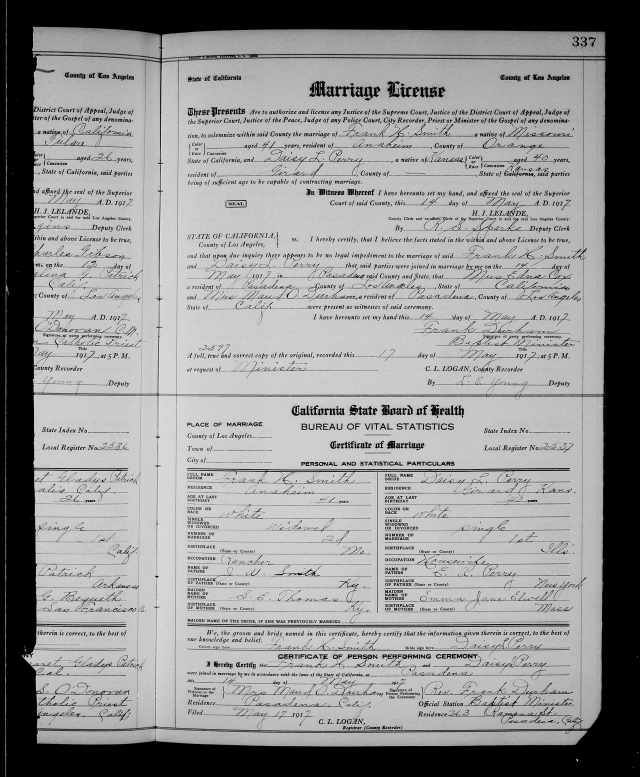 337
County of Los Angeles
District Court of Appeal, Judge of
ter of the Gospel of any denomina-
a native of California
aged 26 years,
, State of California, said parties
nd affixed the seal of the Superior
May A. D. 1917
H. J. LELANDE,
Deputy Clerk
within and above License to be true,
Charles Gibson
on the 12 day of
Patrick
Calif.
County of Los Angeles
May A. D. 1917
O'Donovan
Catholic Priest
May 1917, at 5 P. M.
County Recorder
Young Deputy
State Index No.
Local Register No. 2236
et Gladys Patrick
Calif.
26 years
Single
1st
Calif.
Patrick
Arkansas
San Francisco
therein is correct, to the best of
Gladys Patrick
S. O'Donovan
Catholic Priest
Angeles, Calif.
State of California
County of Los Angeles
Marriage License
These Presents Are to authorize and license any Justice of the Supreme Court, Justice of the District Court of Appeal, Judge of
the Superior Court, Justice of the Peace, Judge of any Police Court, City Recorder, Priest or Minister of the Gospel of any denomina-
tion, to solemnize within said County the marriage of Frank H. Smith a native of Missouri
Color or Race Caucasian aged 41 years, resident of Anaheim, County of Orange
State of California, and Daisy L. Perry, a native of Kansas Color or Race Caucasian aged 40 years,
resident of Girard County of — , State of California, said parties Kansas
being of sufficient age to be capable of contracting marriage.
In Witness Whereof I have hereunto set my hand, and affixed the seal of the Superior
SEAL
Court of said County, this 14 day of May A. D. 1917
H. J. LELANDE,
County Clerk and ex-officio Clerk of the Superior Court in and for said Los Angeles County.
By R. S. Sparks Deputy Clerk
STATE OF CALIFORNIA, County of Los Angeles, ss. I hereby certify, that I believe the facts stated in the within and above License to be true,
and that upon due inquiry there appears to be no legal impediment to the marriage of said Frank H. Smith
and Daisy L. Perry, that said parties were joined in marriage by me on the 14 day of
May 1917 in Pasadena said County and State, that Miss Edna Cox
a resident of Pasadena County of Los Angeles State of California
and Mrs Maud O. Durham, a resident of Pasadena, County of Los Angeles
State of Calif were present as witnesses of said ceremony.
I have hereunto set my hand this 14 day of May A. D. 1917
Frank Durham
Signature of party performing ceremony
Baptist Minister
Title
2237
A full, true and correct copy of the original, recorded this 17 day of May 1917, at 5 P.M.
at request of Minister C. L. LOGAN, County Recorder
By L. E. Young Deputy
California State Board of Health
PLACE OF MARRIAGE
BUREAU OF VITAL STATISTICS
State Index No.
County of Los Angeles
Town of
Certificate of Marriage
Local Register No. 2237
City of
PERSONAL AND STATISTICAL PARTICULARS
FULL NAME GROOM Frank H. Smith
FULL NAME BRIDE Daisy L. Perry
RESIDENCE Anaheim
RESIDENCE Girard Kans.
AGE AT LAST BIRTHDAY 41 years
AGE AT LAST BIRTHDAY 40 years
COLOR OR RACE White
COLOR OR RACE White
SINGLE WIDOWED OR DIVORCED Widowed
SINGLE WIDOWED OR DIVORCED Single
NUMBER OF MARRIAGE 2d
NUMBER OF MARRIAGE 1st
BIRTHPLACE (State or County) Mo.
BIRTHPLACE (State or County) Ills.
OCCUPATION Rancher
OCCUPATION Housewife
NAME OF FATHER Smith
NAME OF FATHER E. L. Perry
BIRTHPLACE OF FATHER (State or County) Ky.
BIRTHPLACE OF FATHER (State or County) New York
MAIDEN NAME OF MOTHER S. E. Thomas
MAIDEN NAME OF MOTHER Emma Jane Elwell
BIRTHPLACE OF MOTHER (State or County) Ky.
BIRTHPLACE OF MOTHER (State or County) Mass
MAIDEN NAME OF THE BRIDE, IF SHE WAS PREVIOUSLY MARRIED
We, the groom and bride named in this certificate, hereby certify that the information given therein is correct, to the best of
our knowledge and belief.
Groom sign here Frank H. Smith Bride sign here Daisy L. Perry
CERTIFICATE OF PERSON PERFORMING CEREMONY
I Hereby Certify that Frank H. Smith and Daisy Perry
were joined in marriage by me in accordance with the laws of the State of California, at Pasadena
this 14 day of May 1917
Signature of Witness to the Marriage Mrs Maud O. Durham
Signature of Person Performing the Ceremony Rev. Frank Durham
Residence Pasadena, Calif.
Official Station Baptist Minister
Filed May 17 1917
Residence 263 Ramona St. Pasadena, Calif
C. L. LOGAN,
Registrar (County Recorder)